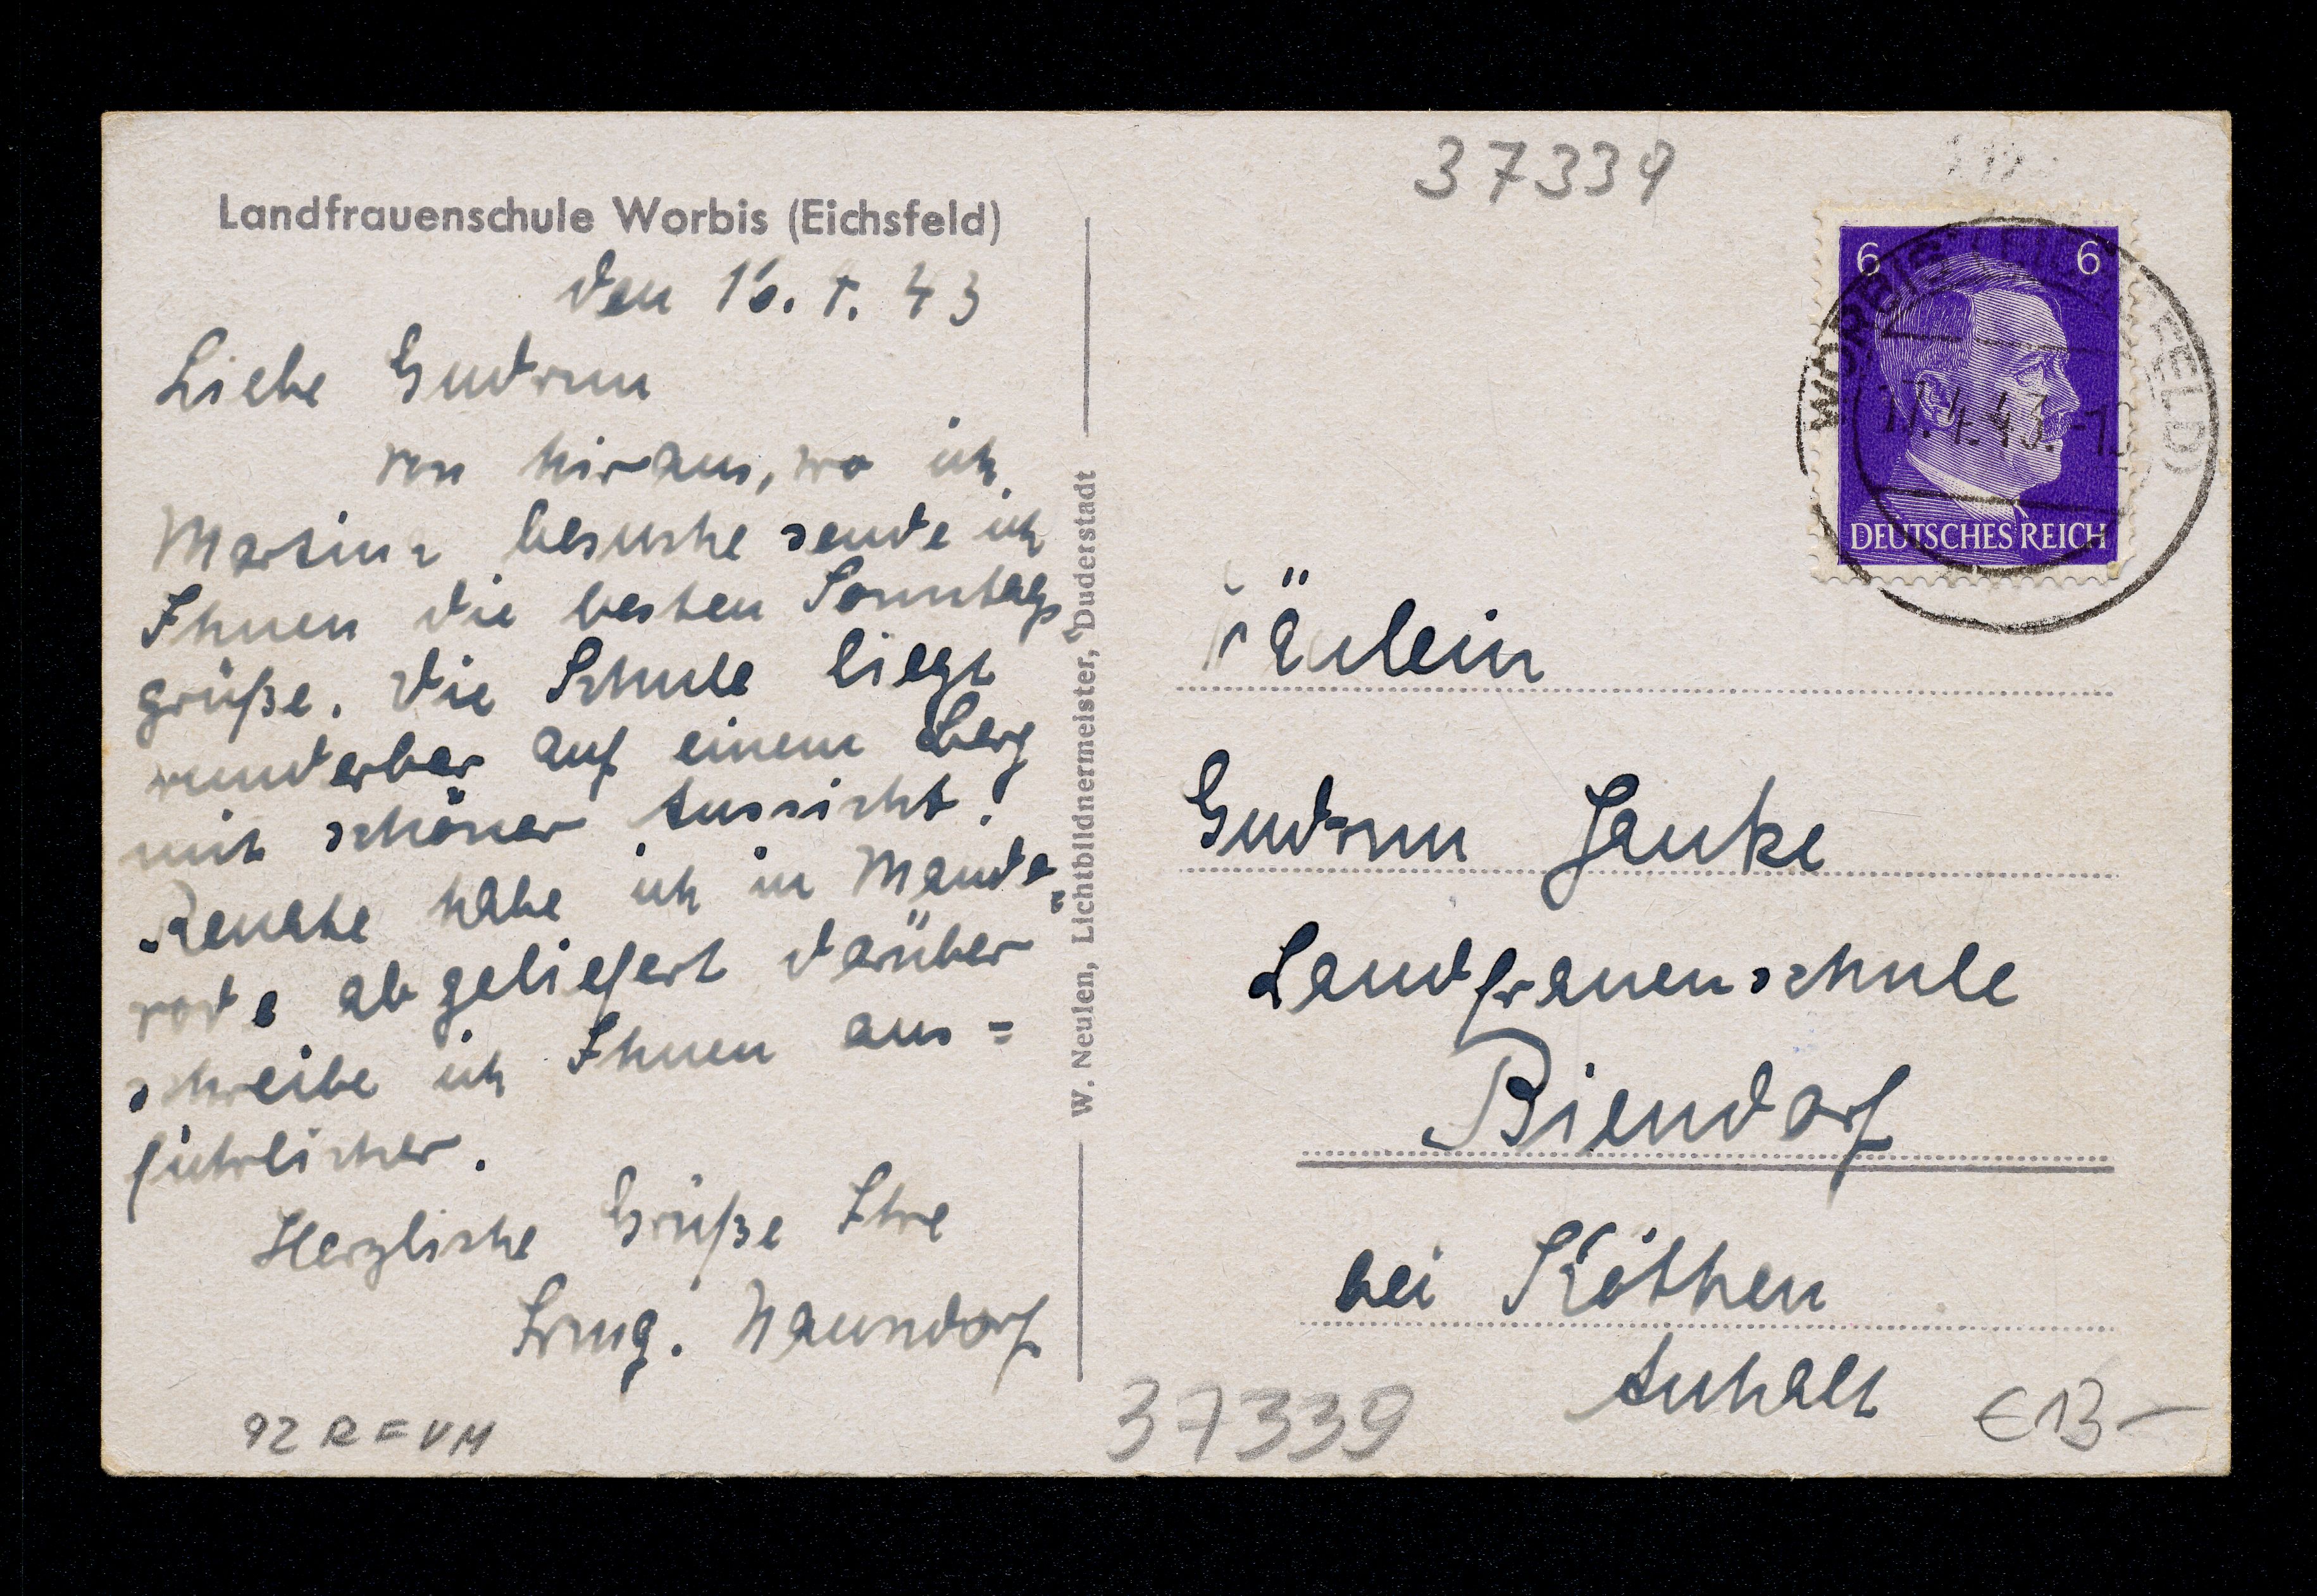 Landfrauenschule Worbis (Eichsfeld)
den 16. 4. 43
Liebe Gudrun
von hier aus, wo ich
Martina besuche sende ich
Ihnen die besten Sonntags
grüße. Die Schule liegt
wunderbar auf einem Berg
mit schöner Aussicht!
Renate habe ich in Wande"
rode abgeliefert darüber
schreibe ich Ihnen aus=
führlicher.
Herzliche Grüße Ihre
Irmg. Naundorf
92 R F V M
W. Neulen, Lichtbildnermeister, Duderstadt
37339
6 6
DEUTSCHES REICH
WORBIS FELD)
17.4.43.-
Fräulein
Gudrun Janke
Landfrauenschule
Biendorf
bei Köthen
Anhalt
37339
€ 13-